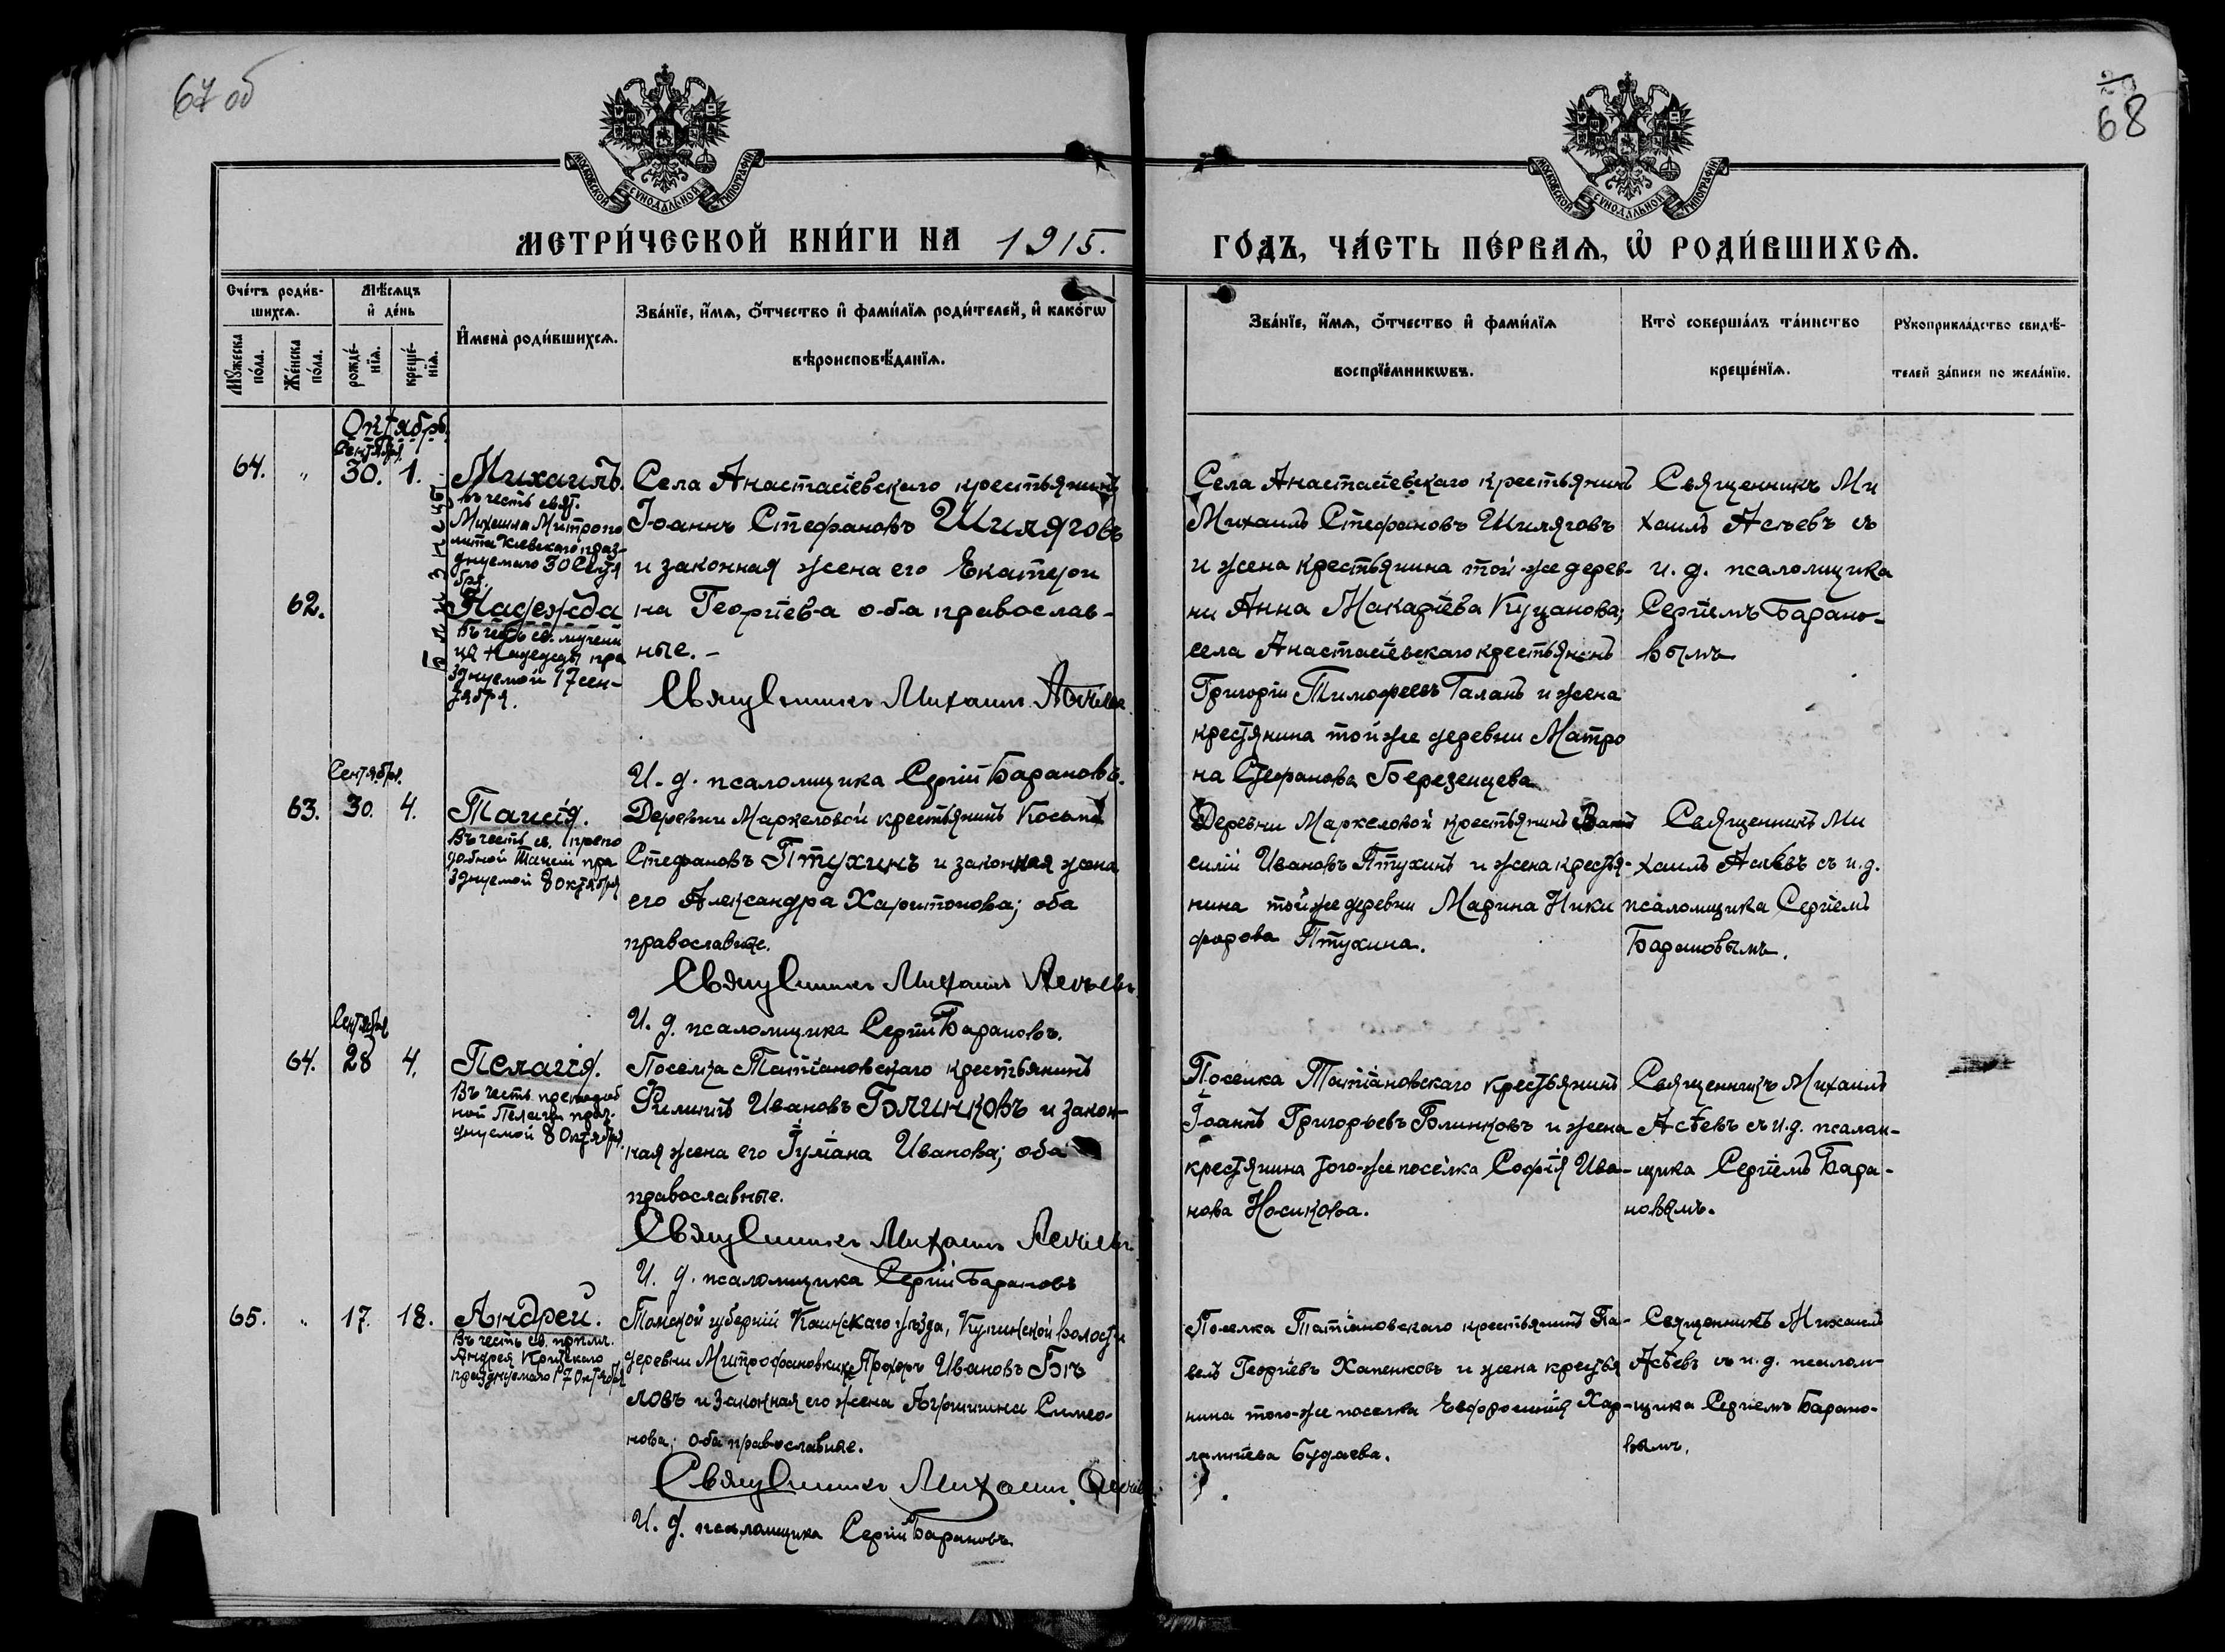 67 об
68
МОСКОВСКОЙ СѴНОДАЛЬНОЙ ТИПОГРАФІИ
МОСКОВСКОЙ СѴНОДАЛЬНОЙ ТИПОГРАФІИ
МЕТРИ́ЧЕСКОЙ КНИ́ГИ НА 1915.
ГО́ДЪ, ЧА́СТЬ ПЕ́РВАѦ, Ѡ҆ РОДИ́ВШИХСѦ.
Сче́тъ роди́в-
шихсѧ.
Мѣ́сѧцъ
и҆ де́нь
Мꙋ́жеска по́ла.
Же́нска по́ла.
рожде́-
нїѧ.
креще́-
нїѧ.
И҆мена̀ роди́вшихсѧ.
Зва́нїе, и҆́мѧ, ѻ҆́тчество и҆ фами́лїѧ роди́телей, и҆ како́гѡ
вѣроисповѣ́данїѧ.
Зва́нїе, и҆́мѧ, ѻ҆́тчество и҆ фами́лїѧ
воспрїе́мникѡвъ.
Кто̀ соверша́лъ та́инство
креще́нїѧ.
Рꙋкоприкла́дство свидѣ́-
телей за́писи по жела́нїю.
Октябрь.
Сентября.
64. " 30. 1.
Михаилъ.
Въ честь свят.
Михаила Митропо
лита Кіевскаго праз-
днуемаго 30 Сентя
бря.
62.
Близнецы.
Надежда
Въ честь св. мучени
цы Надежды пра
зднуемой 17 сен-
тября.
Села Анастасіевскаго крестьянинъ
Іоаннъ Стефановъ Шиляговъ
и законная жена его Екатери
на Георгіева оба православ-
ные. –
Священникъ Михаилъ Асѣевъ
И. д. псаломщика Сергій Барановъ.
Села Анастасіевскаго крестьянинъ
Михаилъ Стефановъ Шиляговъ
и жена крестьянина той-же дерев-
ни Анна Макаріева Куцанова;
села Анастасіевскаго крестьянинъ
Григорій Тимофеевъ Галанъ и жена
крестянина той же деревни Матро
на Стефанова Березенцева
Священникъ Ми
хаилъ Асѣевъ съ
и. д. псаломщика
Сергіемъ Барано-
вымъ
Сентября.
63. 30. 4.
Таисія.
Въ честь св. препо
добной Таисіи пра
зднуемой 8 октября
Деревни Маркеловой крестьянинъ Косьма
Стефановъ Птухинъ и законная жена
его Александра Харитонова; оба
православные.
Священникъ Михаилъ Асѣевъ
И. д. псаломщика Сергій Барановъ.
Деревни Маркеловой крестьянинъ Ва
силій Ивановъ Птухинъ и жена крестья-
нина той же деревни Марина Ники
форова Птухина.
Священникъ Ми
хаилъ Асѣевъ съ и.д.
псаломщика Сергіемъ
Барановымъ.
Сентября
64. 28 4.
Пелагія.
Въ честь преподоб
ной Пелагіи праз-
днуемой 8 Октября.
Поселка Татіановскаго крестьянинъ
Филиппъ Ивановъ Голинковъ и закон-
ная жена его Іуліана Иванова; оба
православные.
Священникъ Михаилъ Асѣевъ
И. д. псаломщика Сергій Барановъ
Поселка Татіановскаго крестьянинъ
Іоаннъ Григорьевъ Блинковъ и жена
крестянина того-же поселка Софія Ива-
нова Носикова.
Священникъ Михаилъ
Асѣевъ съ и.д. псалом-
щика Сергіемъ Бара-
новымъ.
65. " 17. 18.
Андрей.
Въ честь св. прпмч.
Андрея Критскаго
празднуемаго 17 Октября
Томской губерніи Каинскаго уѣзда, Купинской волости
деревни Митрофановки Прохоръ Ивановъ Бѣ
ловъ и законная его жена Агриппина Симео-
нова; оба православные.
Священникъ Михаилъ Асѣевъ
И. д. псаломщика Сергій Барановъ.
Поселка Татіановскаго крестьянинъ Па-
велъ Георгіевъ Хапенковъ и жена крестья
нина того-же поселка Евфросинія Хар-
лампіева Будаева.
Священникъ Михаилъ
Асѣевъ съ и. д. псалом-
щика Сергіемъ Барано-
вымъ.